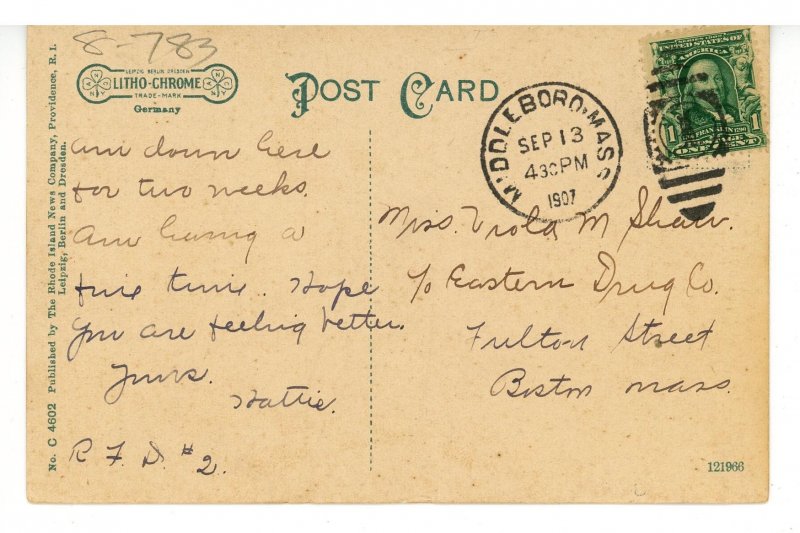 8-783
LEIPZIG BERLIN DRESDEN
LITHO-CHROME
TRADE-MARK
Germany
POST CARD
MIDDLEBORO, MASS.
SEP 13
4 30 PM
1907
SERIES 1902
UNITED STATES OF
AMERICA
FRANKLIN
1 1
POSTAGE
ONE CENT
Am down here
for two weeks.
Am having a
fine time. Hope
you are feeling better.
Yours.
Hattie.
R. F. D. #2.
Miss. Viola M Shaw.
c/o Eastern Drug Co.
Fulton Street
Boston Mass.
No. C 4602 Published by The Rhode Island News Company, Providence, R. I.
Leipzig, Berlin and Dresden.
121966